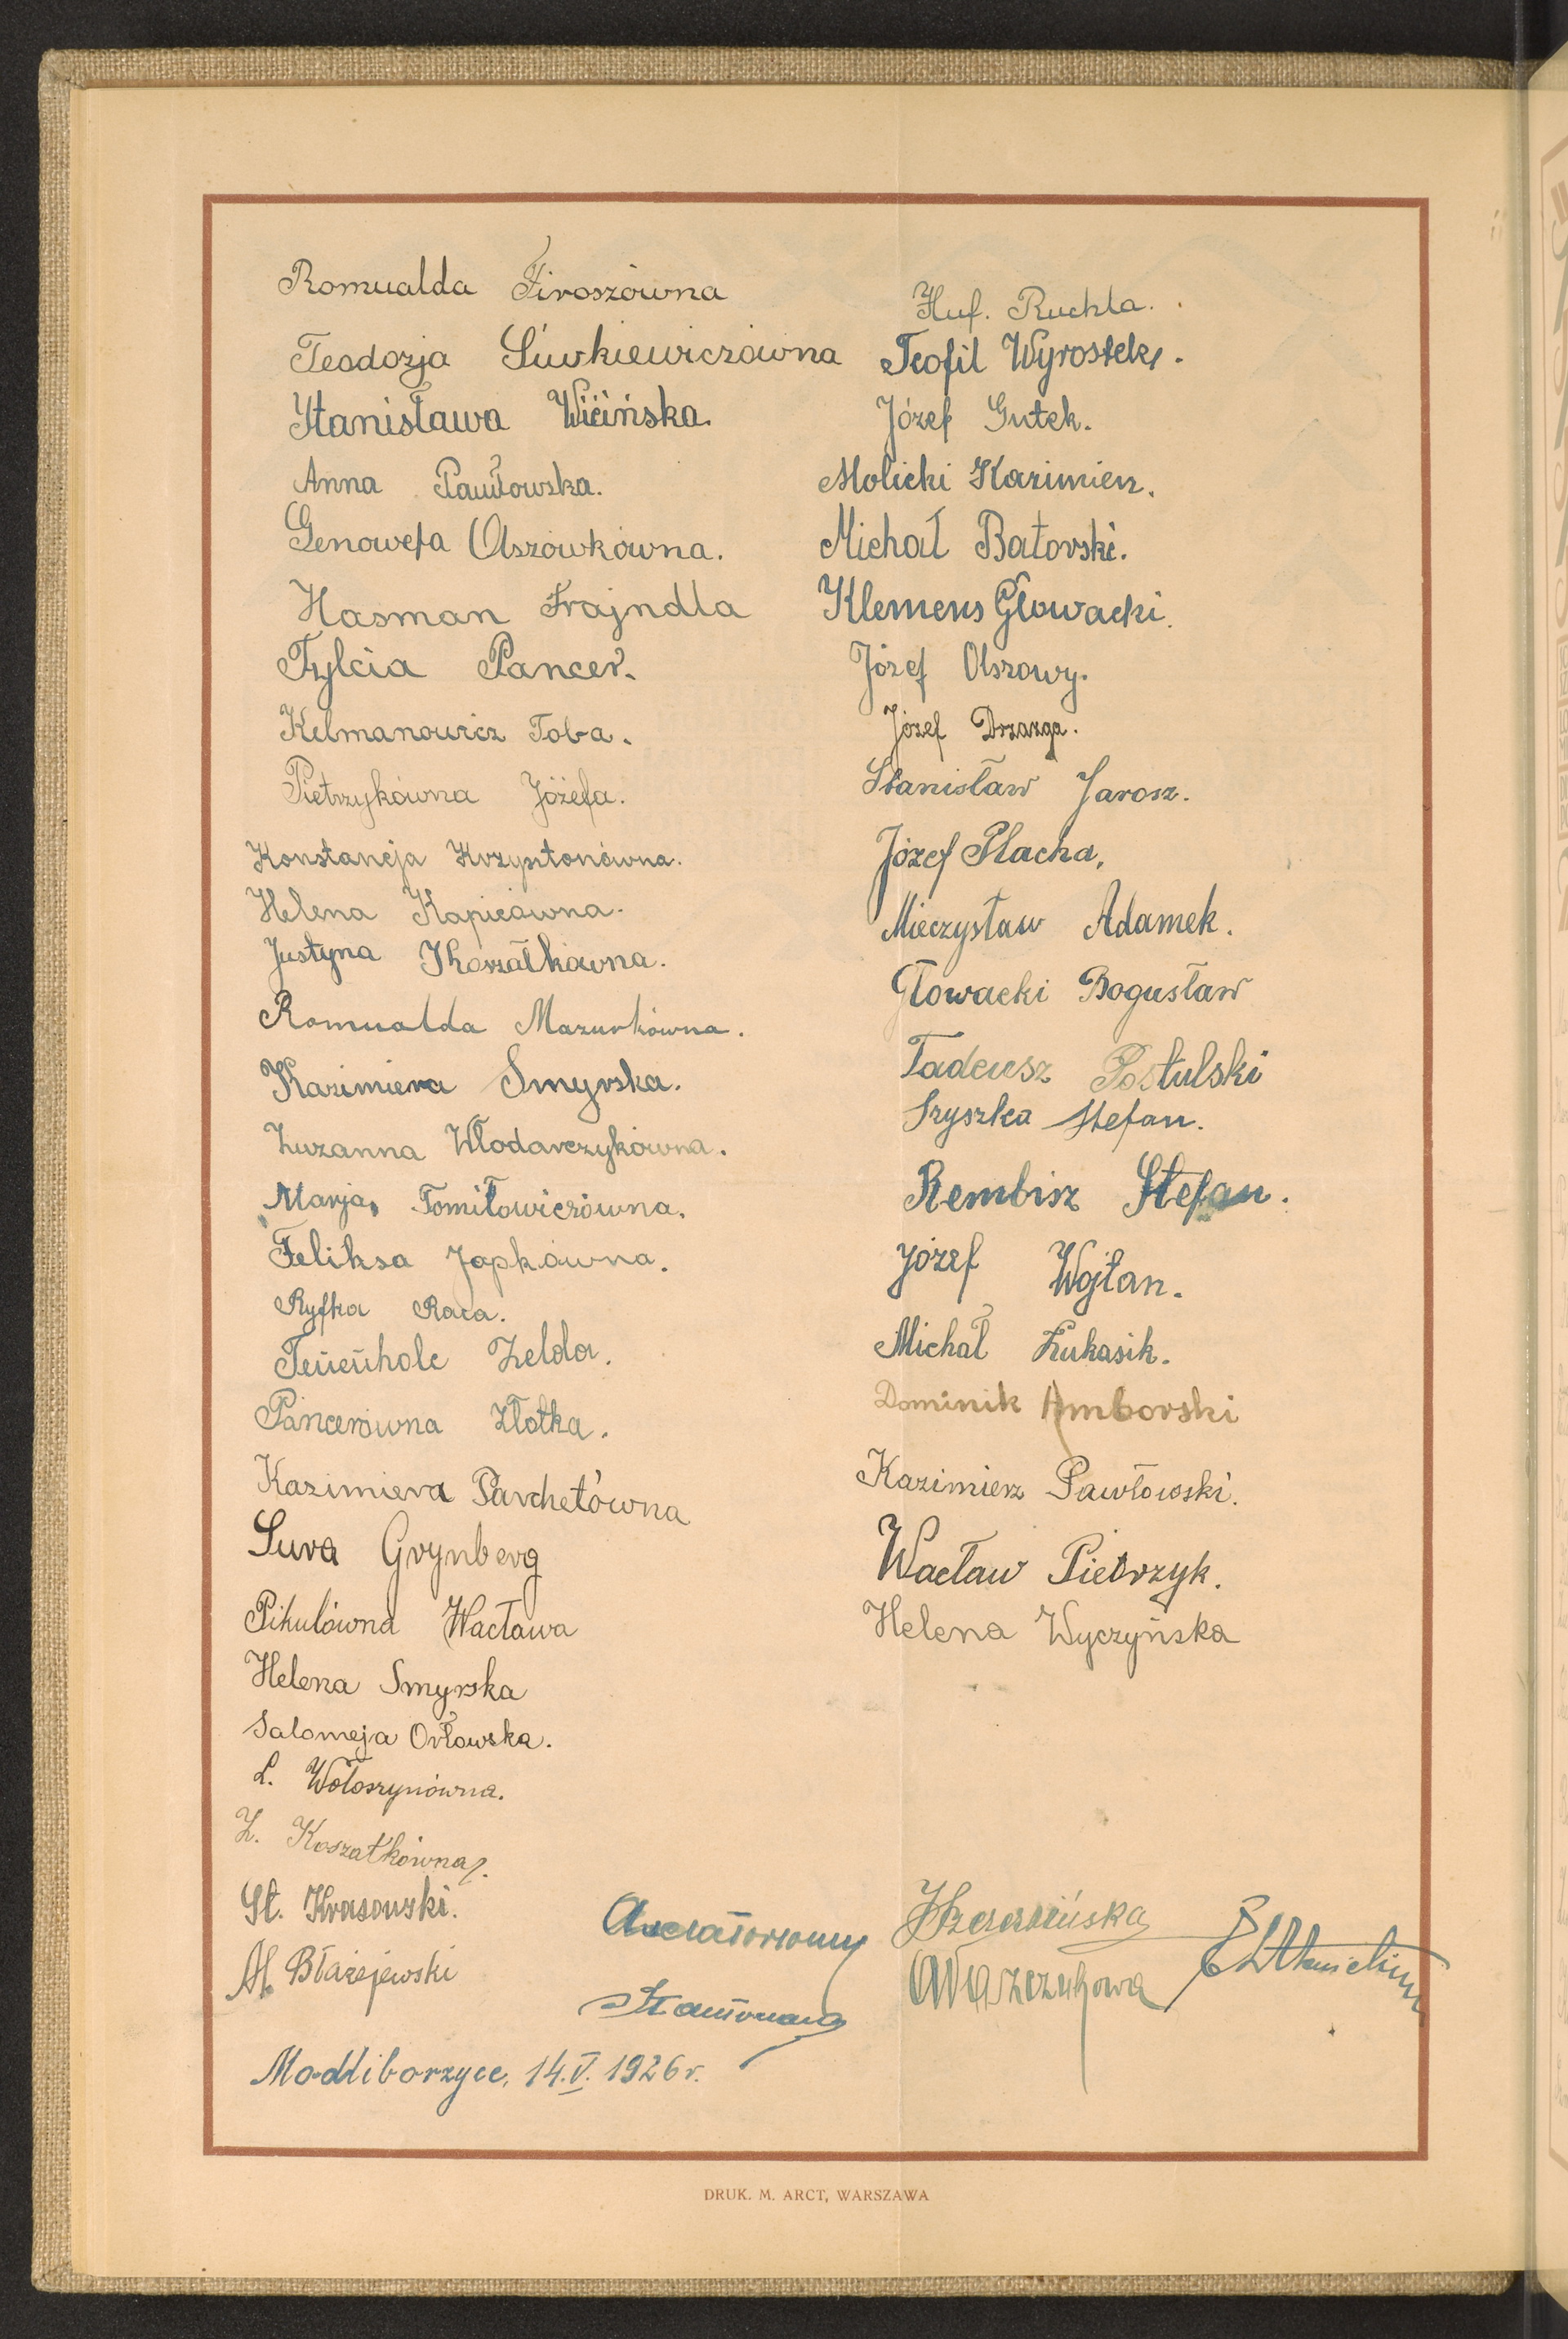 Romualda Firoszówna
Teodozja Surkiewiczówna
Stanisława Wicińska.
Anna Pawłowska.
Genowefa Olszówkówna.
Hasman Frajndla
Fylcia Pancer.
Kelmanowicz Toba.
Pietrzykówna Józefa.
Konstancja Krzysztonówna.
Helena Kapicówna.
Justyna Koszałkówna.
Romualda Mazurkówna.
Kazimiera Smyrska.
Zuzanna Włodarczykówna.
Marja Tomiłowiczówna.
Feliksa Japkówna.
Ryfka Raca.
Zelda.
Pancerówna Złotka.
Kazimiera Parchetówna
Sura Grynberg
Pikulówna Wacława
Helena Smyrska
Salomeja Orłowska.
L. Wołoszynówna.
Z. Koszałkówna.
St. Krasowski.
Al. Błażejewski
Modliborzyce, 14.V. 1926 r.
Huf. Ruchla.
Teofil Wyrostek.
Józef Gutek.
Molicki Kazimierz.
Michał Batorski.
Klemens Głowacki.
Józef Olszowy.
Józef Drzazga.
Stanisław Jarosz.
Józef Płacha,
Mieczysław Adamek.
Głowacki Bogusław
Tadeusz Postulski
Szyszka Stefan.
Rembisz Stefan.
Józef Wojtan.
Michał Łukasik.
Dominik Amborski
Kazimierz Pawłowski.
Wacław Pietrzyk.
Helena Wyczyńska
DRUK. M. ARCT, WARSZAWA